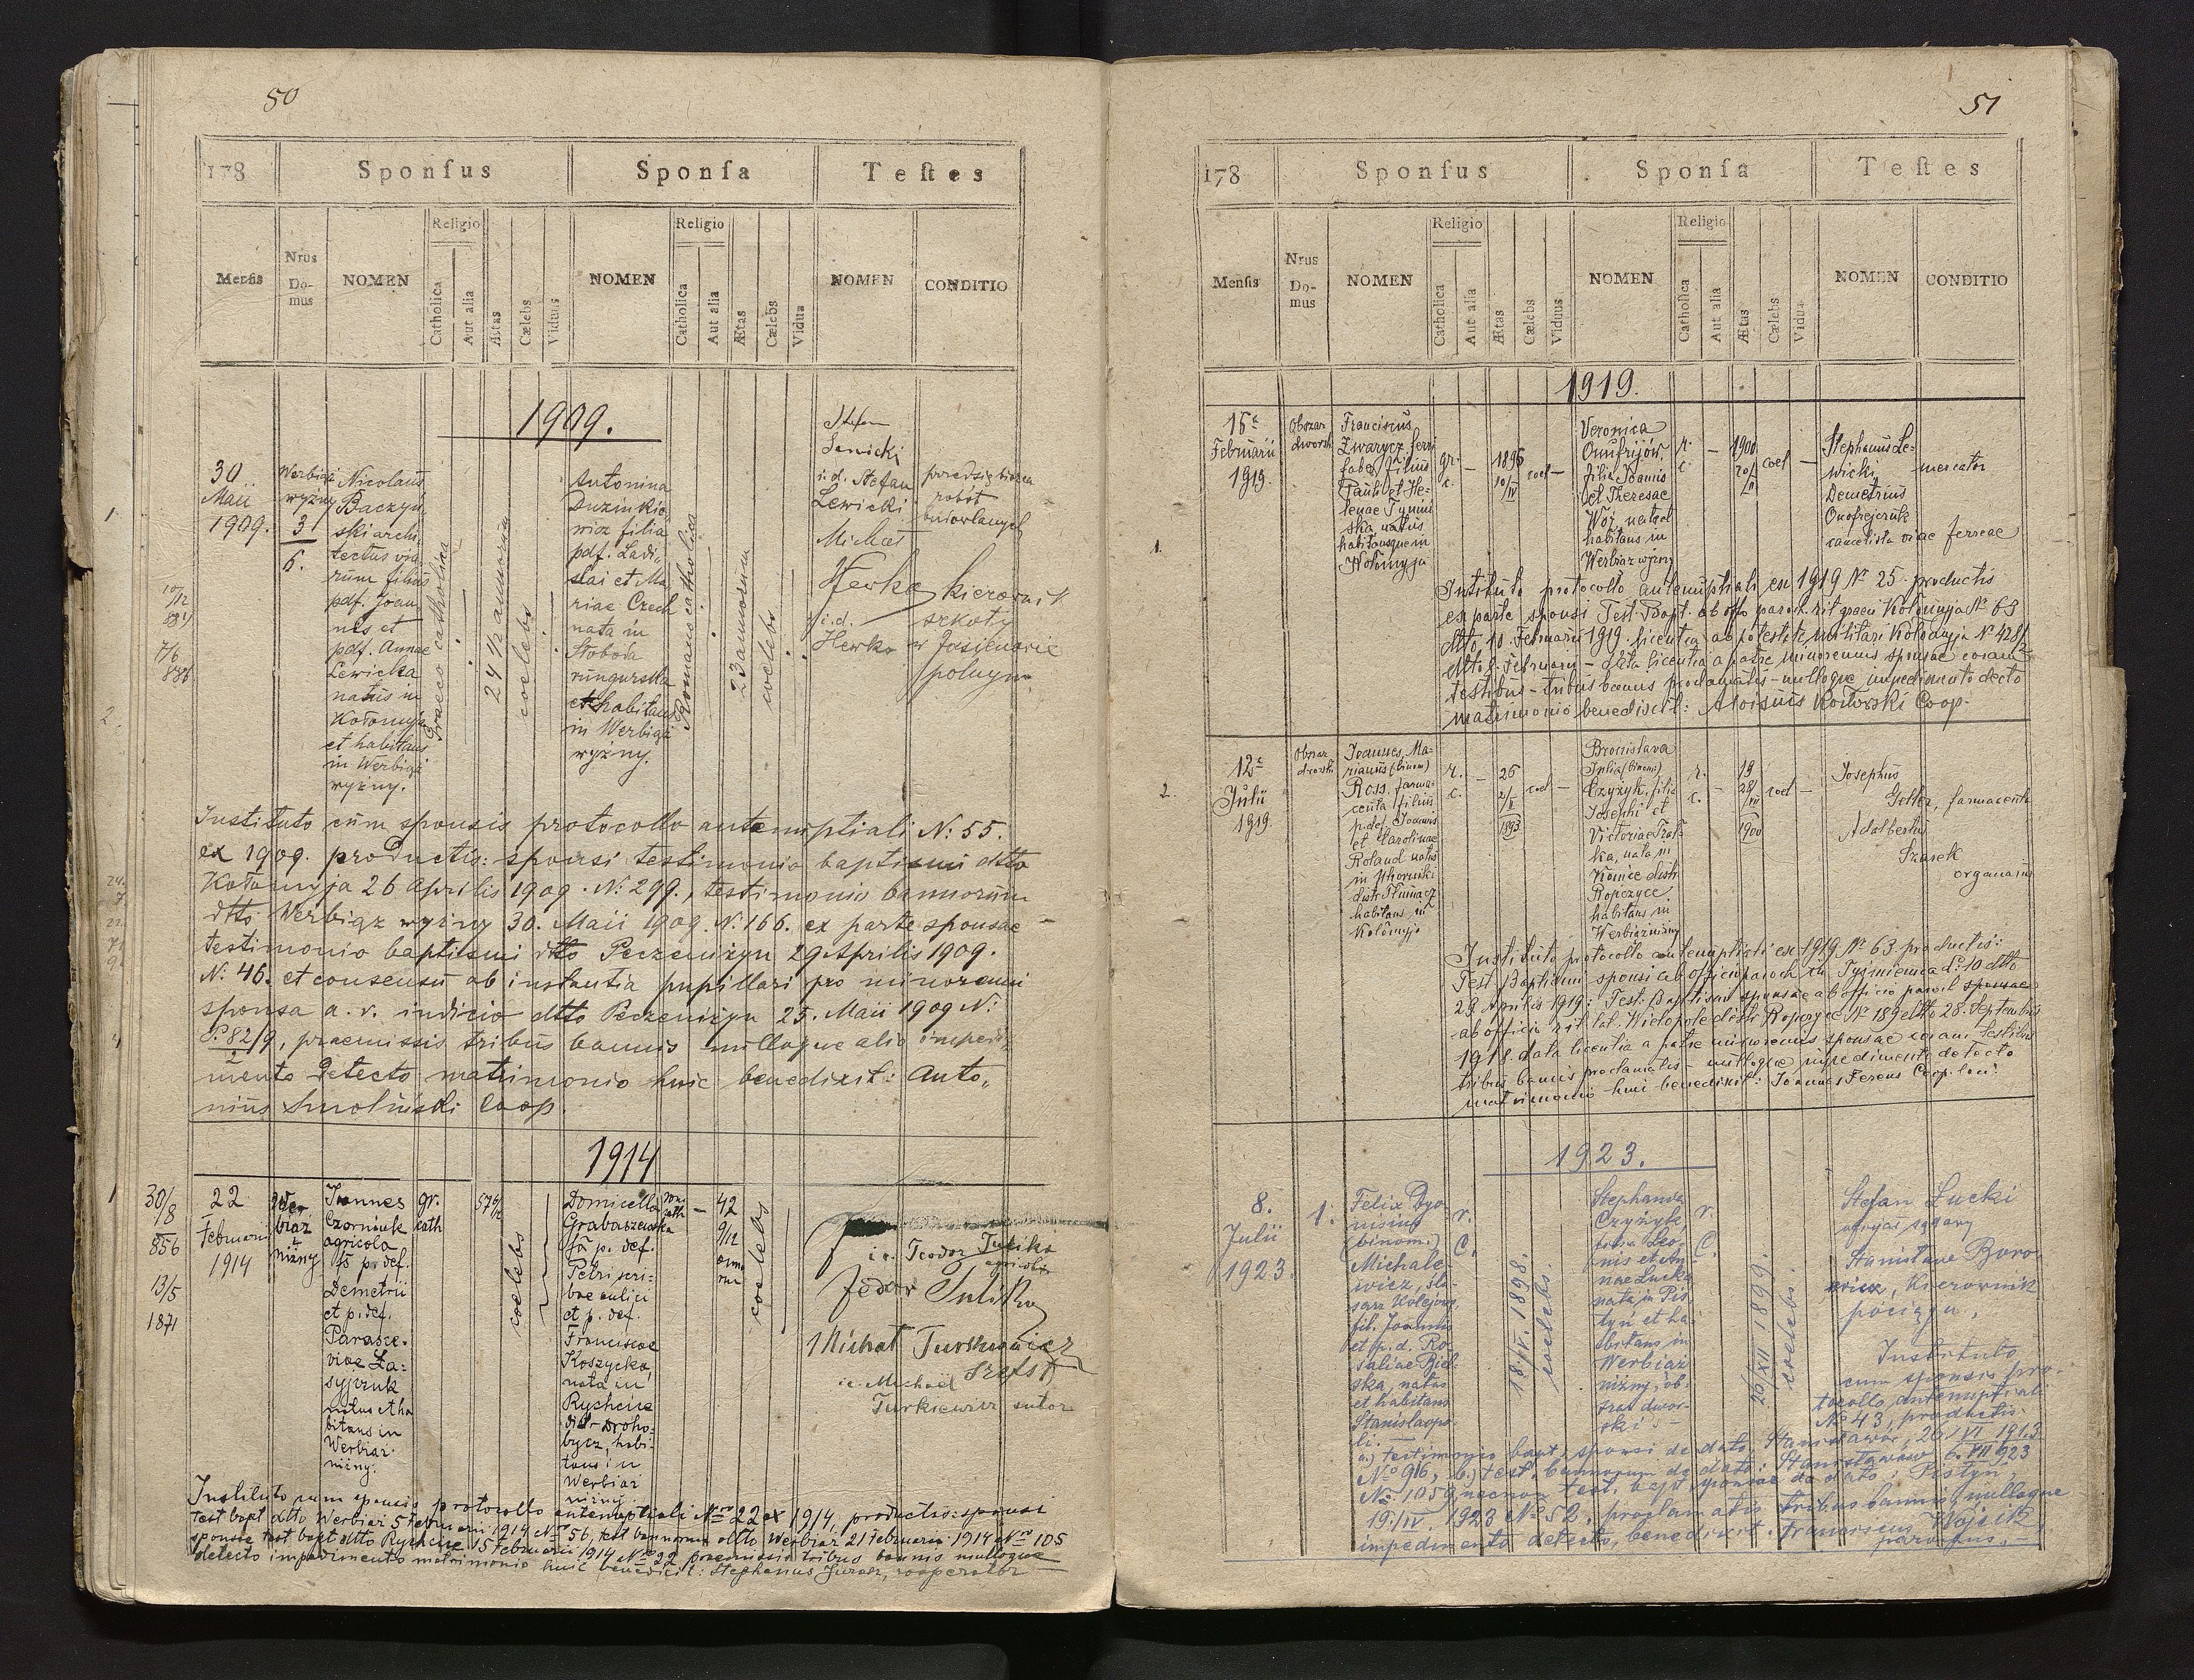 50
178 Sponſus Sponſa Teſtes
Menſis Nrus Domus NOMEN Religio Catholica Aut alia Ætas Cælebs Viduus NOMEN Religio Catholica Aut alia Ætas Cælebs Vidua NOMEN CONDITIO
1909.
1.
30
Maii
1909.
Werbiąż
wyżny
3
6.
Nicolaus
Baczyń
ski archi
tectus via
rum filius
pdf. Joan
nis et
pdf. Annae
Lewicka
natus in
Kołomyja
et habitans
in Werbiąż
wyżny.
Graeco catholica
24 1/2 annorum
coelebs
Antonina
filia
pdf. Ladi,,
slai et Ma
riae Czech
nata in
Słoboda
rungurska
et habitans
in Werbiąż
wyżny.
Romano catholica
23 annorum
coelebs
Stefan
Lewicki
i. d. Stefan
Lewicki
przedsiębiorca
robót
budowlanych
Michał
Hewko
i. d.
Hewko
kierownik
szkoły
w Jasienowie
polnym
Instituto cum sponsis protocollo antenuptiali N: 55.
ex 1909. productis: sponsi testimonio baptismi dtto
Kołomyja 26 Aprilis 1909. N: 299., testimonio bannorum
dtto Werbiąż wyżny 30. Maii 1909. N. 166. ex parte sponsae
testimonio baptismi dtto Peczeniżyn 29 Aprilis 1909.
N: 46. et consensu ab instantia pupillari pro minorenni
sponsa a. r. iudicio dtto Peczeniżyn 25. Maii 1909 N:
P. 82/9, praemissis tribus bannis nulloque alio impedi,,
mento detecto matrimonio huic benedixit: Anto,,
nius Smoliński Coop.
1914
1
30/8
856
13/5
1871
22
Februarii
1914
Wer
biąż
niżny
Ioannes
Czorniuk
agricola
fs p. def.
Demetrii
et p. def.
Parasce-
viae Ła-
syjczuk
natus et ha
bitans in
Werbiąż
niżny.
gr.
cath
coelebs
Domicella
Grabaszewska
fa p. def.
Petri scri-
bae aulici
et p. def.
Franciscae
Koszycka,
nata in
Rychcice
distr Droho-
bycz, habi-
tans in
Werbiąż
niżny.
rom
cath
42
9/12
anno
rum
coelebs
i. e. Teodor Tulika
agricola
Fedor Tulika
Michał Turkiewicz
szefst
i. e. Michael
Turkiewicz sutor
Instituto cum sponsis protocollo antenuptiali Nro 22 ex 1914, productis: sponsi
test bapt dtto Werbiąż 5 Februarii 1914 Nro 56, test bannorum dtto Werbiąż 21 Februarii 1914 Nro 105
sponsae test bapt dtto Rychcice 15 Februarii 1914 Nro 22 praemissis tribus bannis nulloque
detecto impedimento matrimonio huic benedixit: Stephanus Jurasz, cooperator
51
178 Sponſus Sponſa Teſtes
Menſis Nrus Domus NOMEN Religio Catholica Aut alia Ætas Cælebs Viduus NOMEN Religio Catholica Aut alia Ætas Cælebs Vidua NOMEN CONDITIO
1919.
1.
15
Februarii
1919.
Obszar
dworsk
Franciscus
Zwarycz ferri
faber, filius
Pauli et He-
lenae Tymiń
ska, natus
habitansque in
Kołomyja
gr.
c.
1896
10/IV
coel
Veronica
Onufrijów,
filia Joannis
et Theresae
Woj, nata et
habitans in
Werbiąż wyżny
r.
c.
1900
20/II
coel
Stephanus Le-
wicki, mercator
Demetrius
Onofrejczuk
cancelista viae ferreae
Instituto protocollo antenuptiali ex 1919 No 25. productis
ex parte sponsi Test. Bapt. ab offo paroch. rit graeci Kołomyja No 63
dtto 10. Februarii 1919. licentia a potestate militari Kołomyja N 428/2
dtto 8. Februarii - data licentia a patre minorennis sponsae coram
testibus - tribus bannis proclamatis - nulloque impedimento detecto
matrimonio benedixit: Aloisius Kozłowski Coop.
2.
12
Julii
1919
Obszar
dworski
Joannes Ma-
rianus (binom)
Ross. farma-
ceuta filius
p. def. Joannis
et Carolinae
Roland natus
in
distr Tłumacz
habitans in
Kołomyja
r.
c.
26
2/II
1893
coel
Bronislava
Julia (binomi)
Czyżyk, filia
Josephi et
Victoriae
nata in
distr
Ropczyce
habitans in
Werbiąż niżny
r.
c.
19
28/VI
1900
coel
Josephus
Golter, farmaceuta
Adalbertus
Szasek
organarius
Instituto protocollo antenuptiali ex 1919 No 63 productis:
Test Baptismi sponsi ab officio paroch in Tyśmienica L: 10 dtto
28 Aprilis 1919: Test. Baptismi sponsae ab officio paroch sponsae
ab officio rit lat. Wielopole distr Ropczyce No 189 dtto 28. Septembris
1918 data licentia a patre minorennis sponsae coram testibus
tribus bannis proclamatis - nulloque impedimento detecto
matrimonio huic benedixit: Joannes Ferens Coop. loci.
1923.
8.
Julii
1923.
1.
Felix Dyo-
nisius
(binomi.)
Michale-
wicz, ślu-
sarz kolejowy,
fil. Joannis
et p. d. Ro-
saliae Biel-
ska, natus
et habitans
Stanislaopo-
li. -
r.
C.
18./IV. 1898.
coelebs.
Stephania
Czyżyk,
filia Leo-
nis et An-
nae Lucka
nata in Pis-
tyn et ha-
bitans in
Werbiąż
niżny, ob-
szar dwor-
ski -
r.
C.
26/XII 1899.
coelebs.
Stefan Łucki
oficjał sądowy
Stanisław Boro-
wicz, kierownik
pociągu.
Instituto
cum sponsis pro-
tocollo antenuptiali
No 43, productis:
a.) testimonio bapt. sponsi de dato: Stanisławów, 26/VI 1913
No 916, b.) test. bannorum de dato: Stanisławów 6. VII 923
No 1059, necnon test. bapt. sponsae de dato: Pistyn,
19./IV. 1923 No 52. proclamatis tribus bannis, nulloque
impedimento detecto, benedixit: Franciscus Wójcik,
parochus.